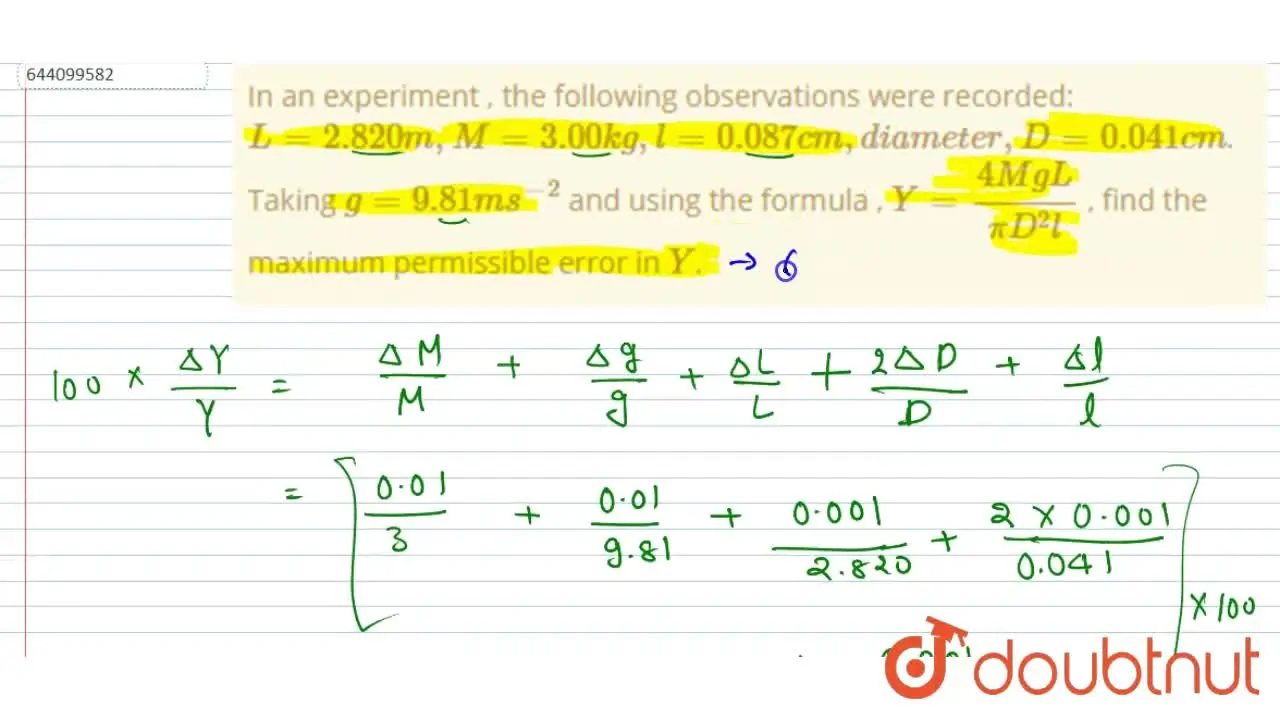 644099582
In an experiment , the following observations were recorded:
L = 2.820m, M = 3.00kg, l = 0.087cm, diameter, D = 0.041cm.
Taking g = 9.81ms⁻² and using the formula , Y = 4MgL / πD²l , find the
maximum permissible error in Y. →
100 × ΔY/Y = ΔM/M + Δg/g + ΔL/L + 2ΔD/D + Δl/l
= [0.01/3 + 0.01/9.81 + 0.001/2.820 + 2 × 0.001/0.041] × 100
doubtnut